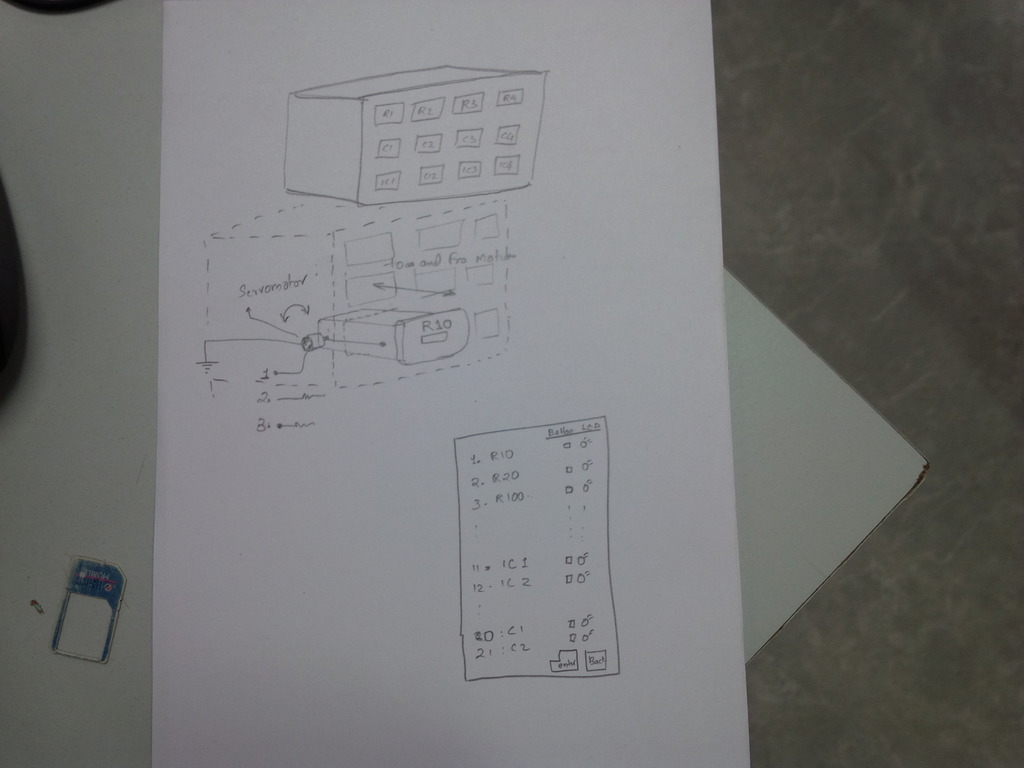 R1 R2 R3 R4
C1 C2 C3 C4
IC1 IC3
To and Fro Motion
Servomotor
R10
1
2.
3.
Button LED
1. R10
2. R20
3. R100
11. IC1
12. IC2
20 : C1
21 : C2
Back